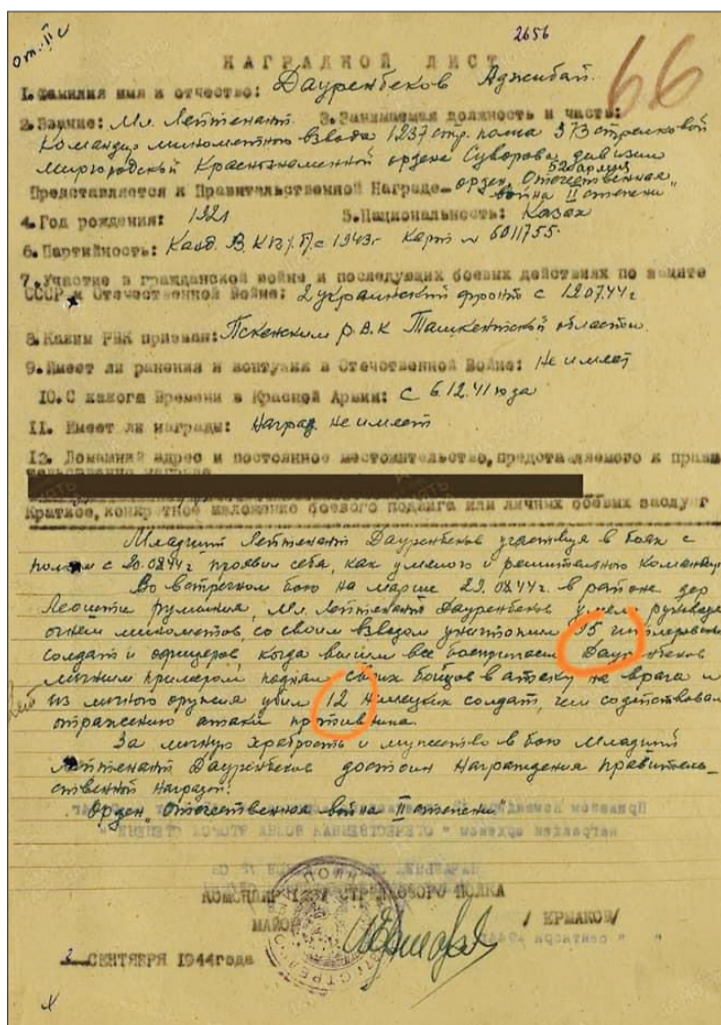 от. II ст
2656
66
НАГРАДНОЙ ЛИСТ
1. Фамилия имя и отчество: Дауренбеков Аджибай.
2. Звание: Мл. Лейтенант 3. Занимаемая должность и часть:
Командир минометного взвода 1237 стр. полка 373 стрелковой
Миргородской Краснознаменной ордена Суворова дивизии
52 армия
Представляется к Правительственной Награде – орден „Отечественная
война II степени"
4. Год рождения: 1921 5. Национальность: Казах
6. Партийность: Канд. ВКП/б/ с 1943г Карт № 6011755.
7. Участие в гражданской войне и последующих боевых действиях по защите
СССР и Отечественной Войне: 2 украинский фронт с 12.07.44г
8. Каким РВК призван: Пскенским Р.В.К Ташкентской области.
9. Имеет ли ранения и контузия в Отечественной Войне: Не имеет
10. С какого Времени в Красной Армии: с 6.12.41 года
11. Имеет ли награды: Наград не имеет
12. Домашний адрес и постоянное местожительство, представляемого к
Краткое, конкретное изложение боевого подвига или личных боевых заслуг
Младший Лейтенант Дауренбеков участвуя в боях с
полком с 20.08.44г проявил себя, как умелого и решительного командира
Во встречном бою на марше 29.08.44г. в районе дер
Леошти Румыния, Мл. Лейтенант Дауренбеков умело руководя
огнем минометов, со своим взводом уничтожил 95 гитлеровских
солдат и офицеров, когда вышли все боеприпасы Дауренбеков
личным примером поднял своих бойцов в атаку на врага и
из личного оружия убил 12 немецких солдат, чем содействовал
отражению атаки противника.
За личную храбрость и мужество в бою Младший
Лейтенант Дауренбеков достоин награждения правитель-
ственной наградой:
Орден „Отечественная война II степени"
КОМАНДИР 1237 СТРЕЛКОВОГО ПОЛКА
МАЙОР / ЕРМАКОВ/
СЕНТЯБРЯ 1944 года